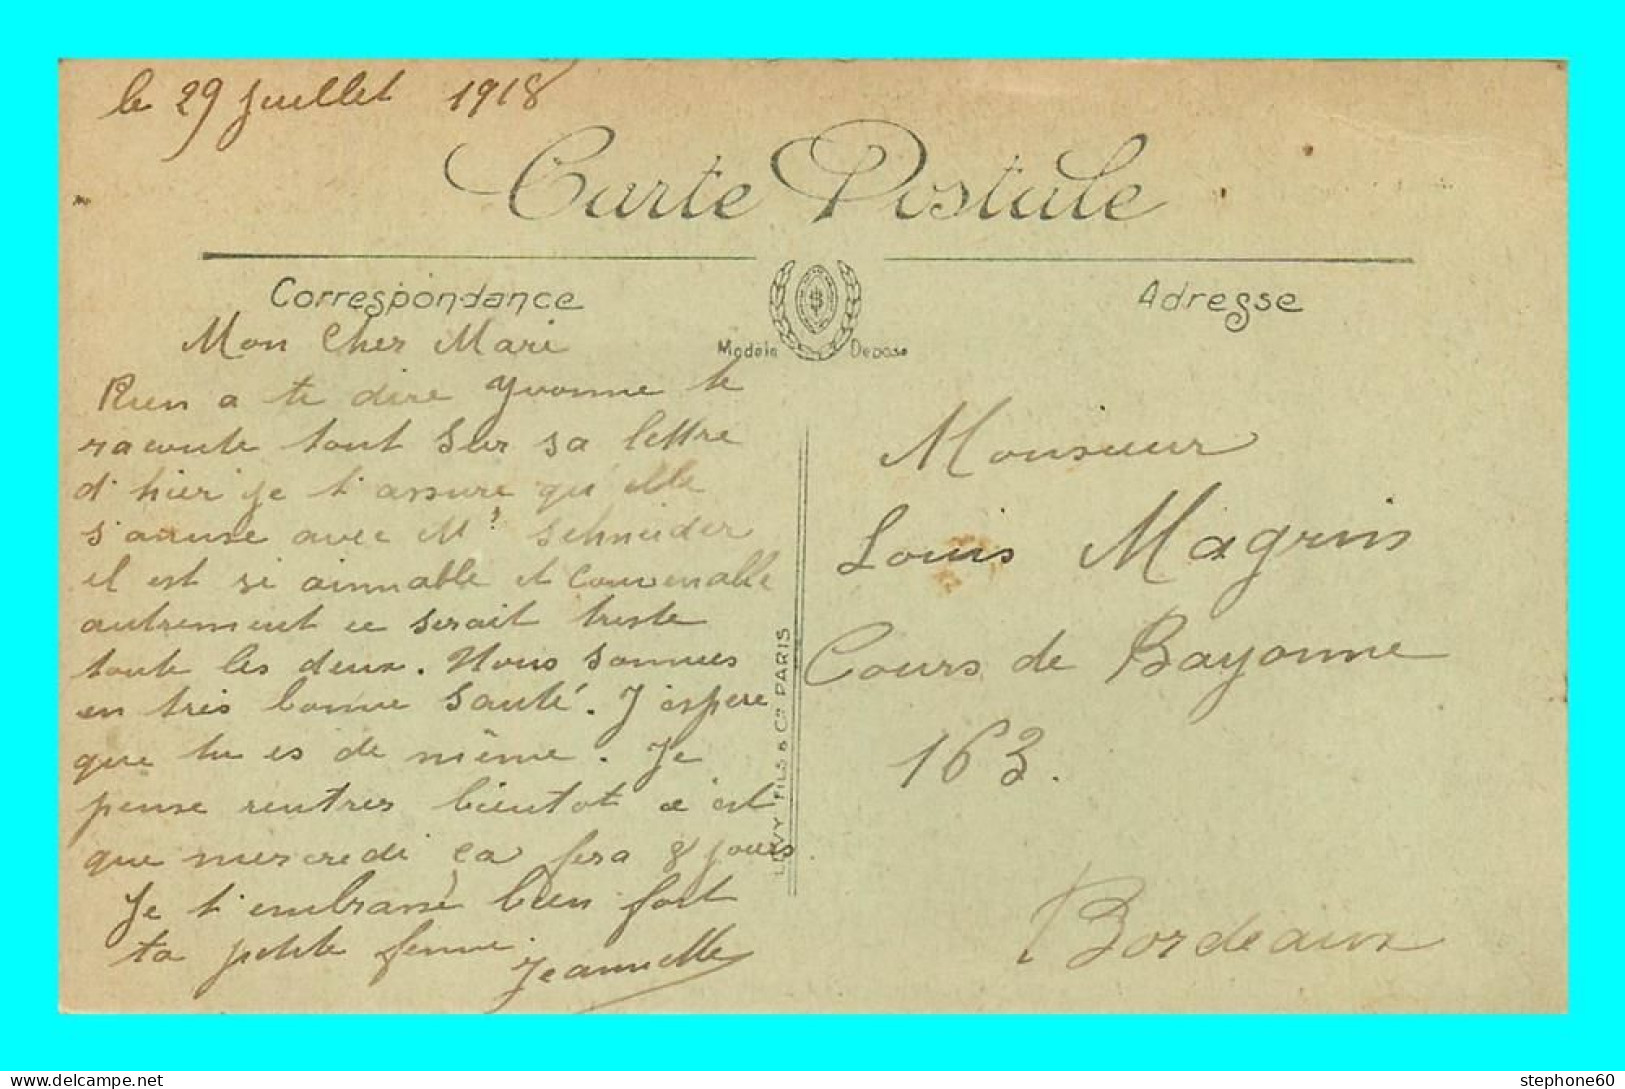 le 29 juillet 1918
Carte Postale
Correspondance
Adresse
Modèle Déposé
Mon Cher Mari
Rien a te dire Yvonne te
raconte tout sur sa lettre
d'hier je t'assure qu'elle
s'amuse avec Mr Schneider
il est si aimable et convenable
autrement ce serait triste
toute les deux. Nous sommes
en très bonne santé. J'espere
que tu es de même. Je
pense rentrer bientot c'est
que mercredi ça fera 8 jours.
Je t'embrasse bien fort
ta petite femme.
Jeannette
LEVY FILS & Cie PARIS
Monsieur
Louis Magrins
Cours de Bayonne
163.
Bordeaux
stephone60